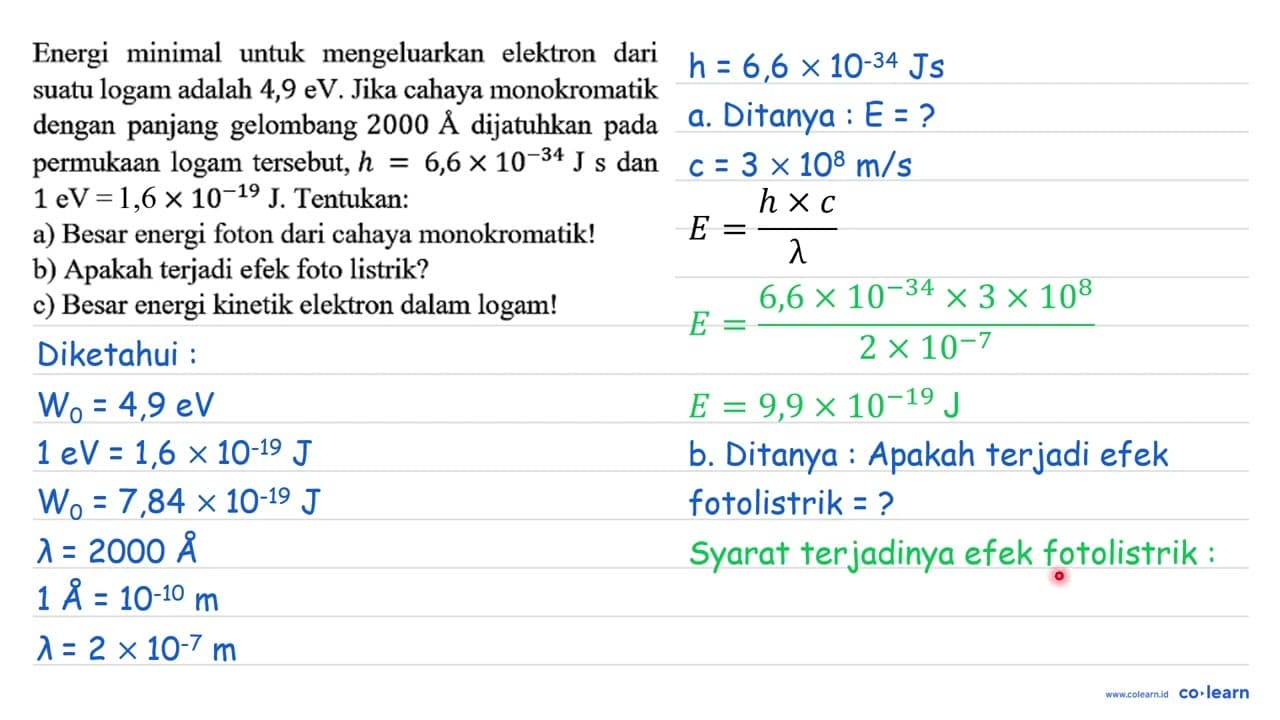 Energi minimal untuk mengeluarkan elektron dari
suatu logam adalah 4,9 eV. Jika cahaya monokromatik
dengan panjang gelombang 2000 Å dijatuhkan pada
permukaan logam tersebut, h = 6,6 × 10⁻³⁴ J s dan
1 eV = 1,6 × 10⁻¹⁹ J. Tentukan:
a) Besar energi foton dari cahaya monokromatik!
b) Apakah terjadi efek foto listrik?
c) Besar energi kinetik elektron dalam logam!
Diketahui :
W₀ = 4,9 eV
1 eV = 1,6 × 10⁻¹⁹ J
W₀ = 7,84 × 10⁻¹⁹ J
λ = 2000 Å
1 Å = 10⁻¹⁰ m
λ = 2 × 10⁻⁷ m
h = 6,6 × 10⁻³⁴ Js
a. Ditanya : E = ?
c = 3 × 10⁸ m/s
h × c
E =
λ
6,6 × 10⁻³⁴ × 3 × 10⁸
E =
2 × 10⁻⁷
E = 9,9 × 10⁻¹⁹ J
b. Ditanya : Apakah terjadi efek
fotolistrik = ?
Syarat terjadinya efek fotolistrik :
www.colearn.id co·learn